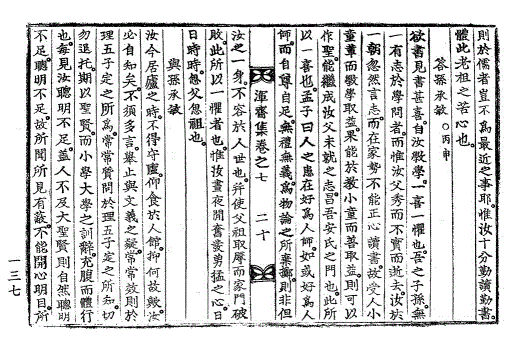 則於儒者豈不爲最近之事耶惟汝十分勤讀勤書
體此老祖之苦心也
答孫承敏 丙申
欲書見書甚喜自汝敎學一喜一懼也吾之子孫無
一有志於學問者而惟汝父秀而不實而逝去汝於
一朝忽然言志而在家勢不能正心讀書故受人小
童輩而敎學取益果能於敎小童而善取益則可以
作聖能繼成汝父未就之志昌吾安氏之門也此所
以一喜也孟子曰人之患在好爲人師如或好爲人
師而自尊自足無禮無義爲物論之所棄鄙則非但
渾齋集卷之七 二十
汝之一身不容於人世也幷使父祖取辱而家門破
敗此所以一懼者也惟汝晝夜開奮憂勇猛之心日
日時時忽父忽祖也
與孫承敏
汝今居廬之時不得守廬仰食於人館抑何故歟汝
必自知矣不須多言擧止與文義之疑常常效則於
理五子定之所爲常常質問於理五子定之所知切
勿退托期以聖賢而小學大學之訓辭充腹而體行
也每見汝聰明不足蓋人不及大聖賢則自然聰明
不足聰明不足故所聞所見有蔽不能開心明目所
一三七